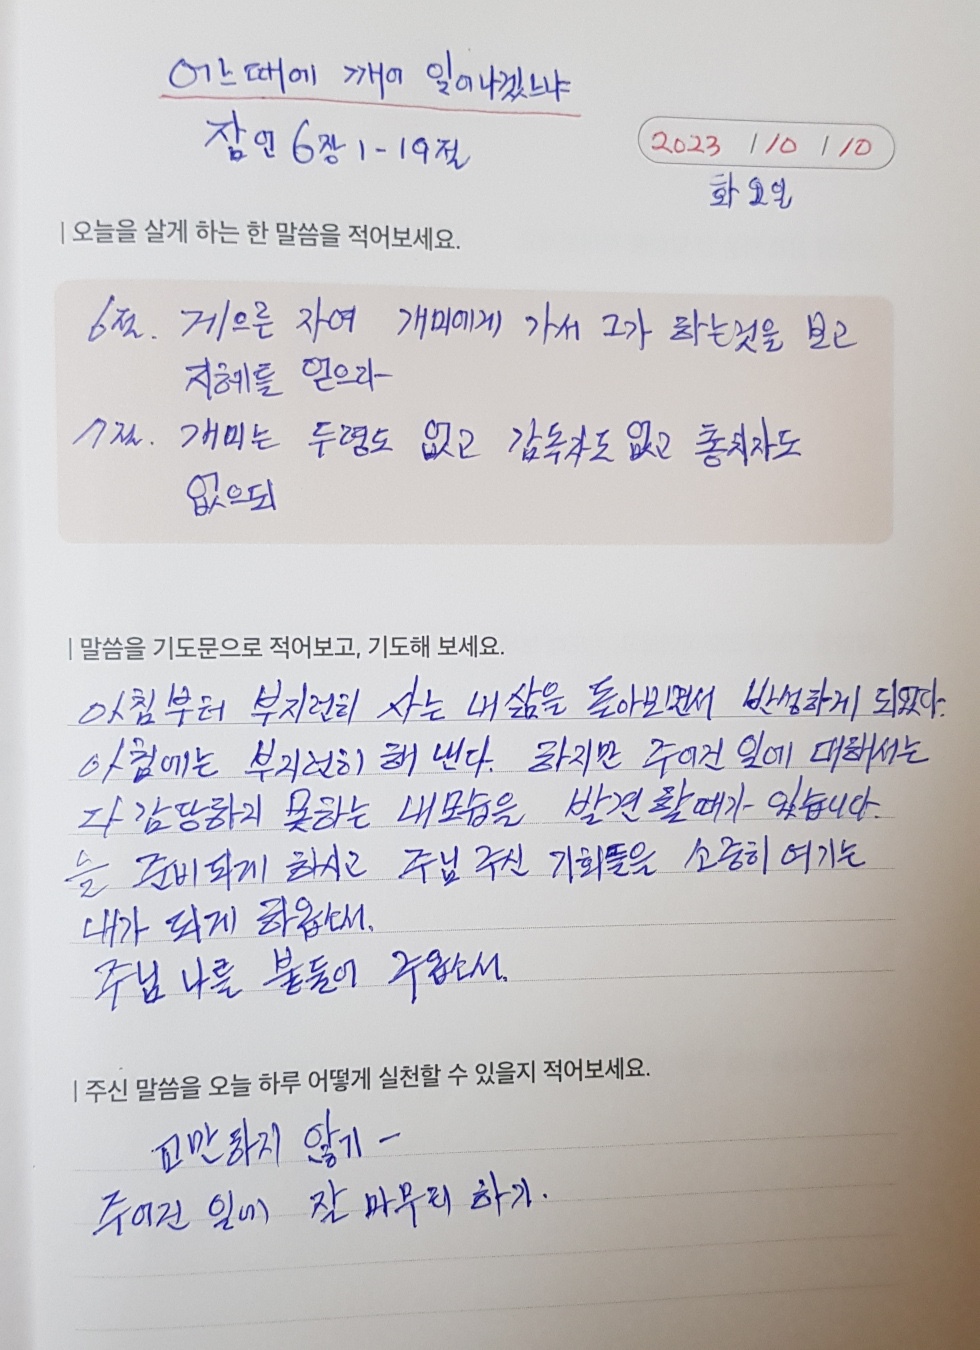 어느때에 깨어 일어나겠느냐
잠언 6장 1-19절
2023 / 10 / 10
화요일
| 오늘을 살게 하는 한 말씀을 적어보세요.
6절. 게으른 자여 개미에게 가서 그가 하는것을 보고
지혜를 얻으라-
7절. 개미는 두령도 없고 감독자도 없고 통치자도
없으되
| 말씀을 기도문으로 적어보고, 기도해 보세요.
아침부터 부지런히 사는 내 삶을 돌아보면서 반성하게 되었다.
아침에는 부지런히 해 낸다. 하지만 주어진 일에 대해서는
다 감당하지 못하는 내모습을 발견 할때가 있습니다.
늘 준비되게 하시고 주님 주신 기회들을 소중히 여기는
내가 되게 하옵소서.
주님 나를 붙들어 주옵소서.
| 주신 말씀을 오늘 하루 어떻게 실천할 수 있을지 적어보세요.
교만하지 않기 -
주어진 일에 잘 마무리 하기.